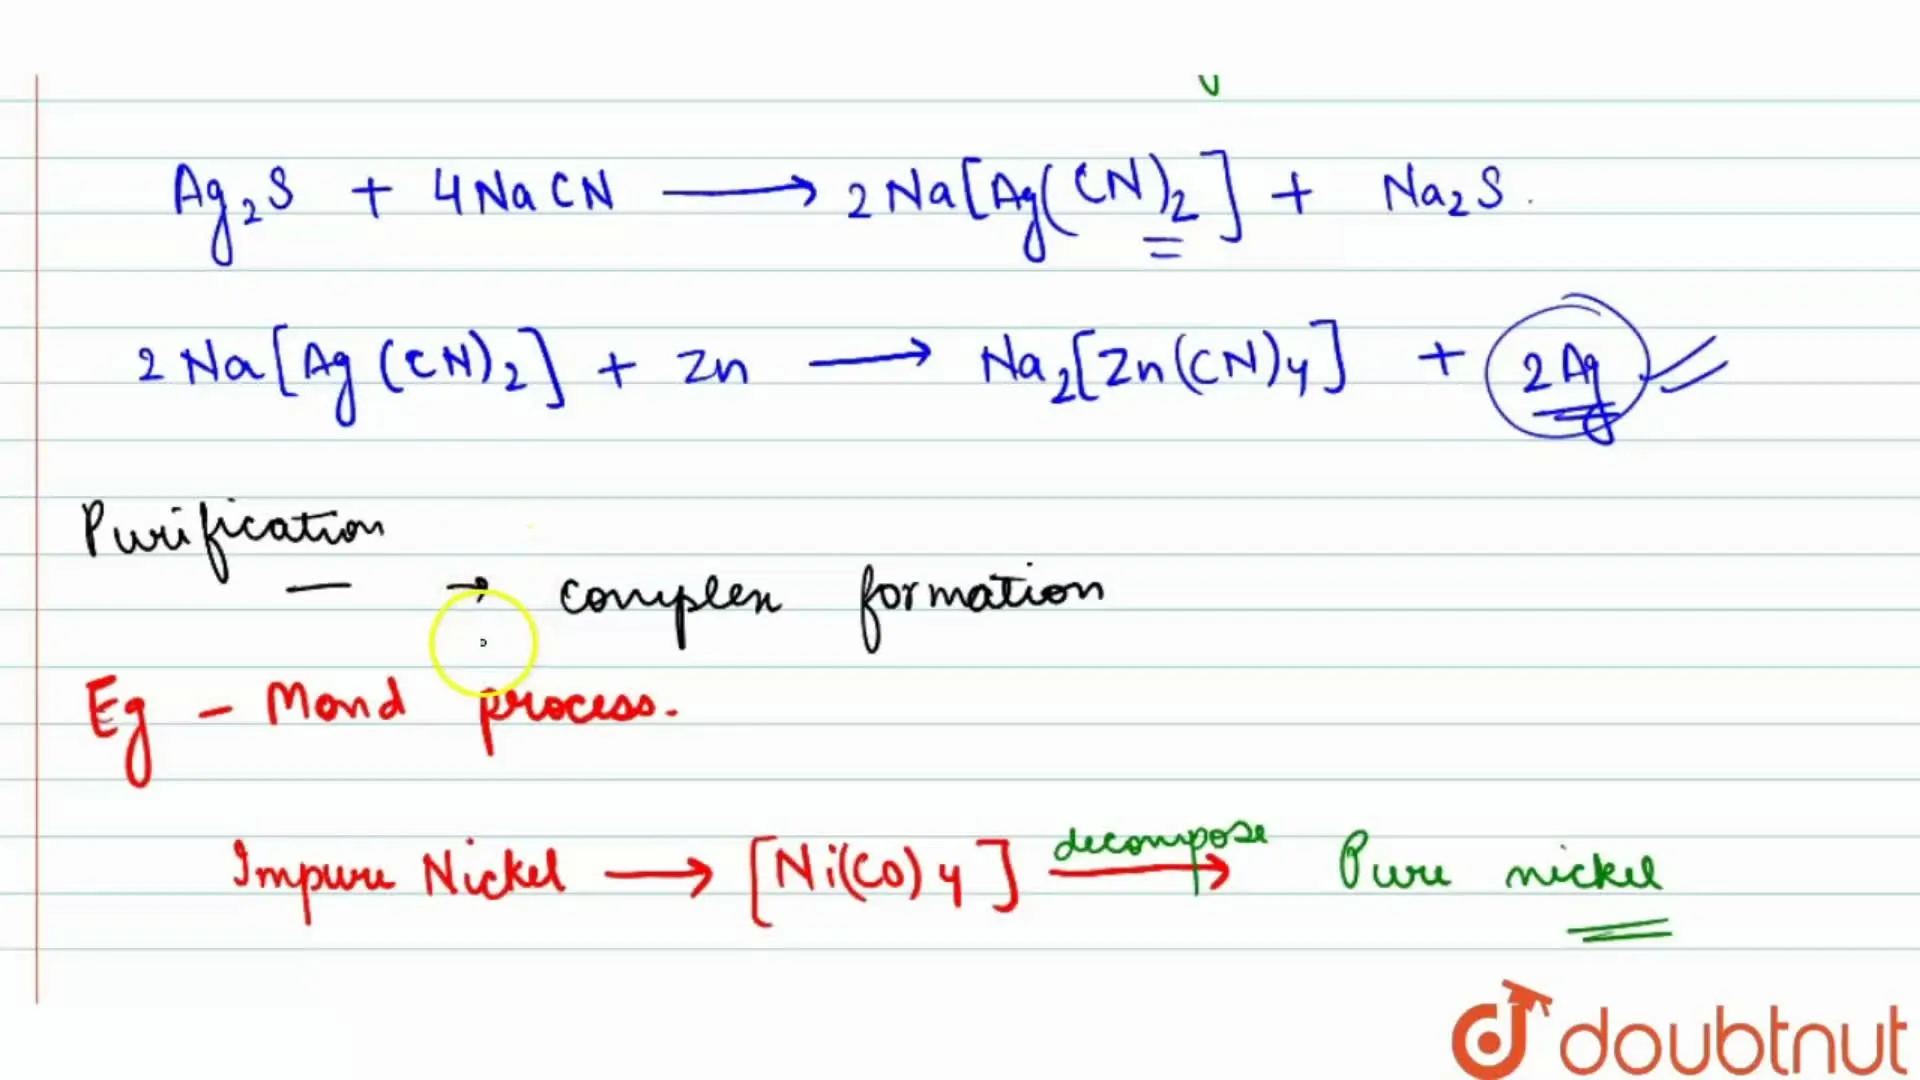 Ag₂S + 4NaCN ⟶ 2Na[Ag(CN)₂] + Na₂S.
2Na[Ag(CN)₂] + Zn ⟶ Na₂[Zn(CN)₄] + 2Ag
Purification
→ complex formation
Eg - Mond process.
decompose
Impure Nickel ⟶ [Ni(CO)₄] ⟶ Pure nickel
doubtnut